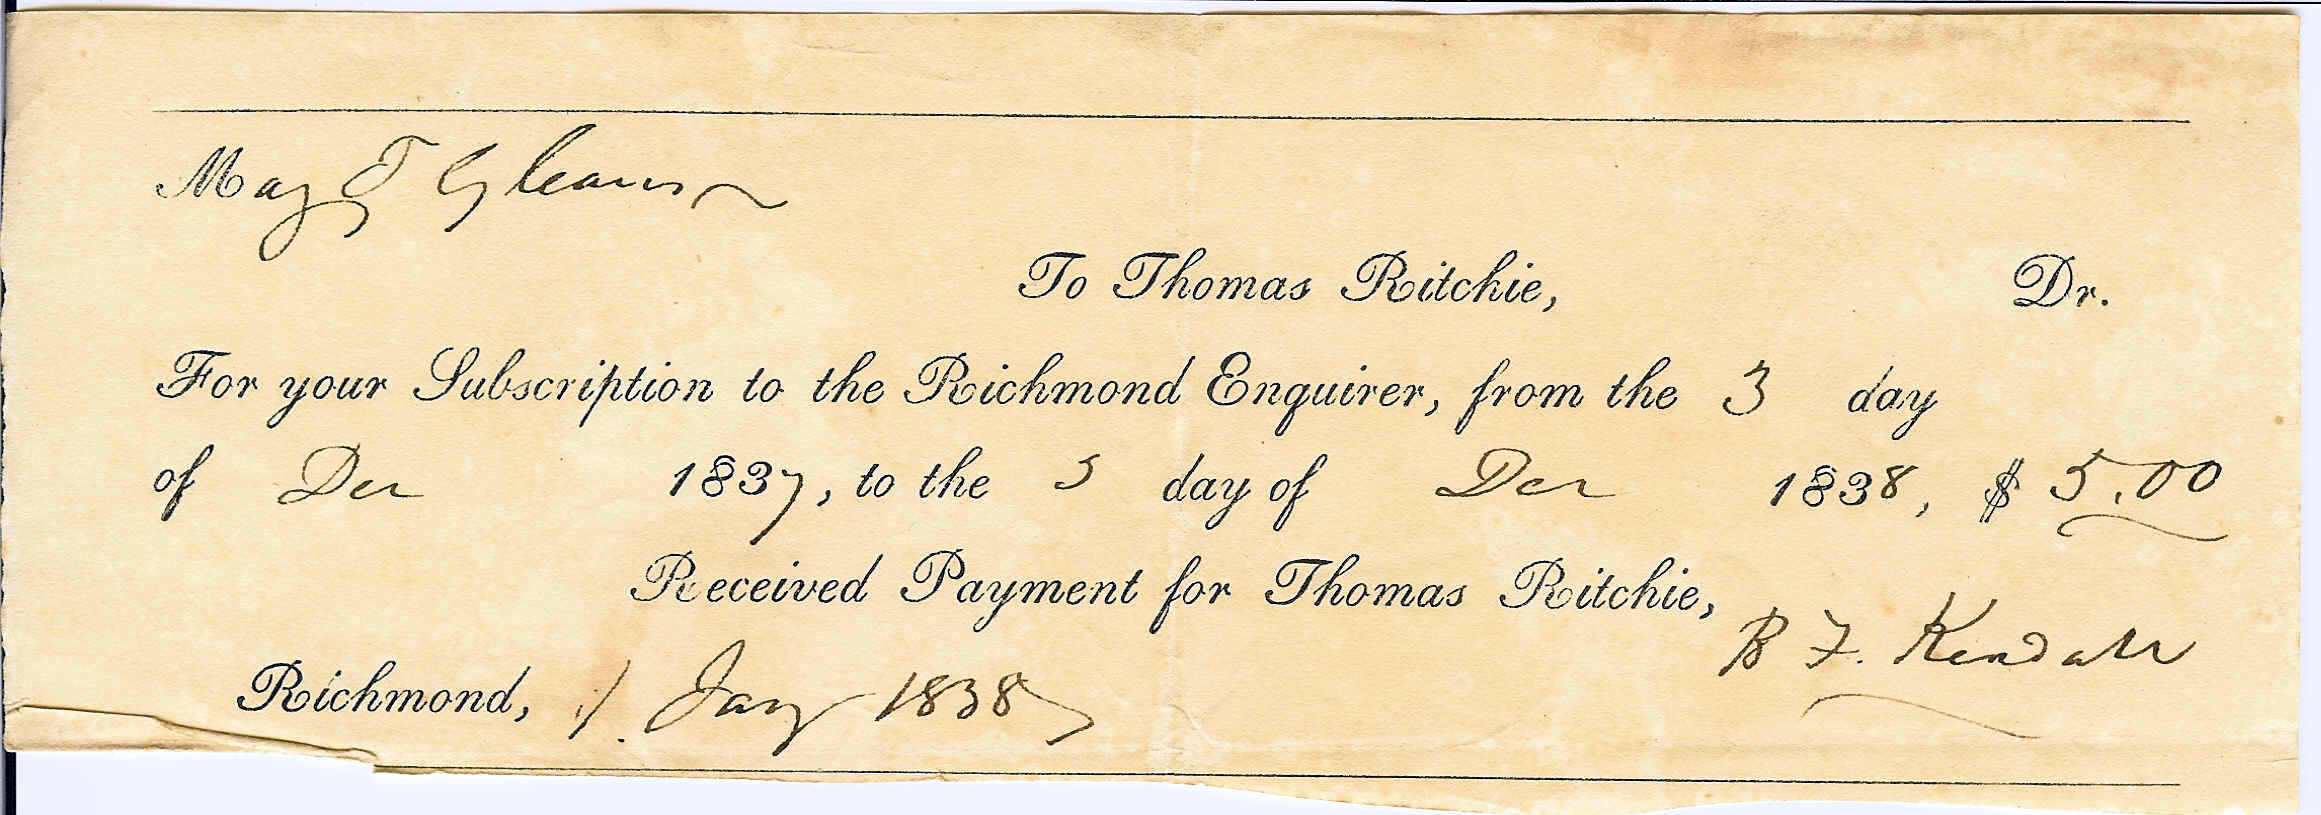 Maj T
To Thomas Ritchie, Dr.
For your Subscription to the Richmond Enquirer, from the 3 day
of Dec 1837, to the 3 day of Dec 1838, $ 5.00
Received Payment for Thomas Ritchie,
B F. Kendall
Richmond, 1. Jany 1838